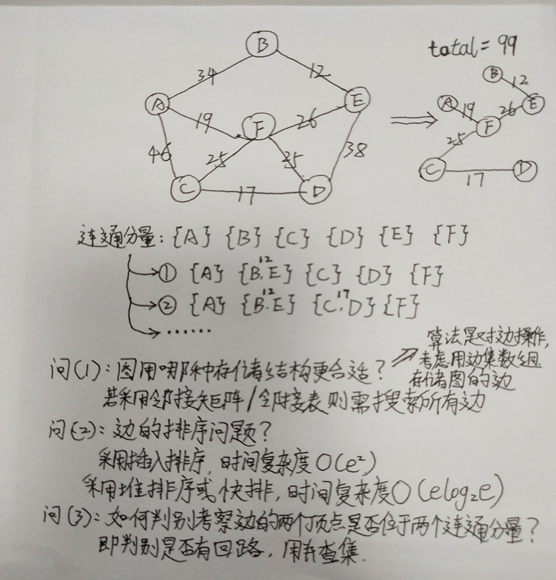 B
total = 99
34
12
B
12
A
E
A
E
19
F
26
19
26
F
46
25
25
38
25
C
17
D
C
17
D
连通分量: {A} {B} {C} {D} {E} {F}
12
→① {A} {B.E} {C} {D} {F}
12 17
→② {A} {B.E} {C.D} {F}
→……
算法是对边操作,
问(1): 图用哪种存储结构更合适? 考虑用边集数组
存储图的边
若采用邻接矩阵/邻接表则需搜索所有边
问(2): 边的排序问题?
采用插入排序, 时间复杂度O(e²)
采用堆排序或快排, 时间复杂度O(elog₂e)
问(3): 如何判别考察边的两个顶点是否位于两个连通分量?
即判别是否有回路, 用并查集.